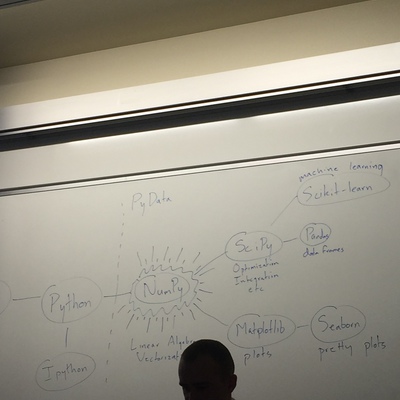 machine learning
Scikit-learn
PyData
SciPy
Optimization
Integration
etc
Pandas
data frames
Python
NumPy
Linear Algebra
Matplotlib
plots
Seaborn
pretty plots
Ipython